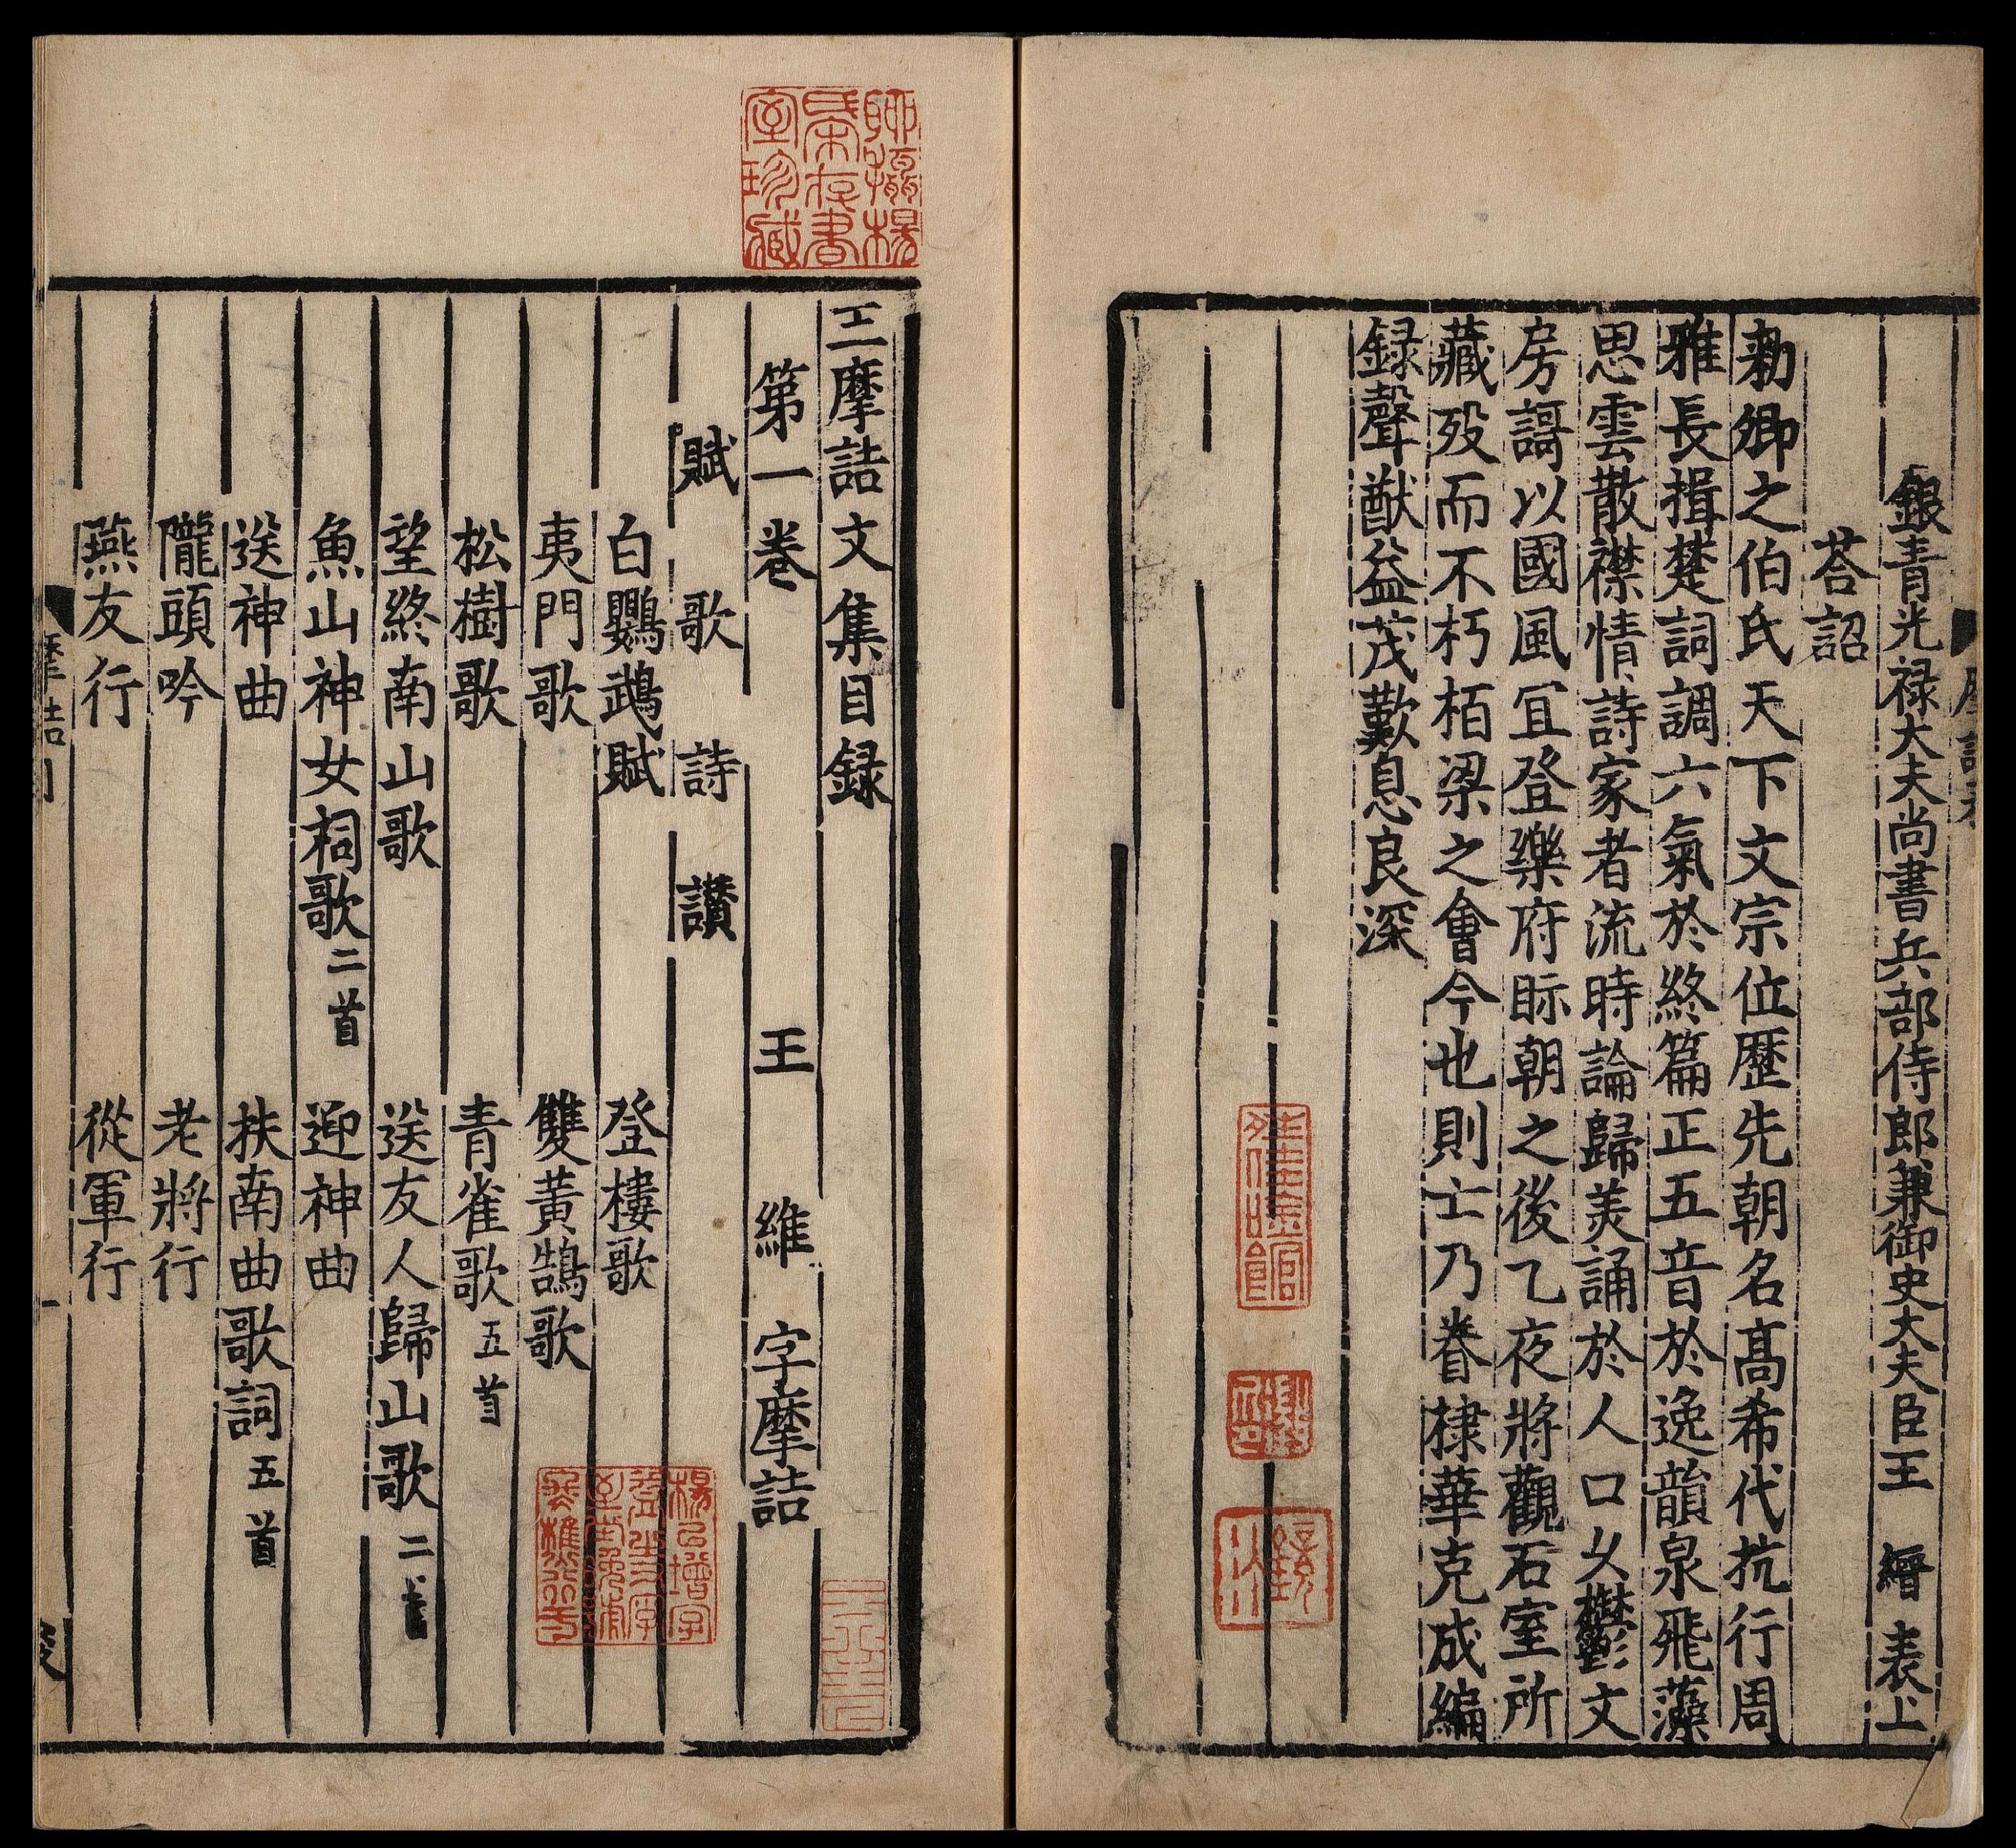 銀青光禄大夫尚書兵部侍郎兼御史大夫臣王 縉 表上
荅詔
勑卿之伯氏天下文宗位歷先朝名髙希代抗行周
雅長揖楚詞調六氣於終篇正五音於逸韻泉飛藻
思雲散襟情詩家者流時論歸美誦於人口乆欝文
房謌以國風冝登樂府眎朝之後乙夜將觀石室所
藏殁而不朽栢梁之會今也則亡乃眷棣華克成編
録聲猷益茂歎息良深
王摩詰文集目録
第一卷 王 維 字摩詰
賦 歌 詩 讃
白鸚鵡賦 登樓歌
夷門歌 雙黃鵠歌
松樹歌 青雀歌五首
望終南山歌 送友人歸山歌二首
魚山神女祠歌二首 迎神曲
送神曲 扶南曲歌詞五首
隴頭吟 老將行
燕友行 從軍行